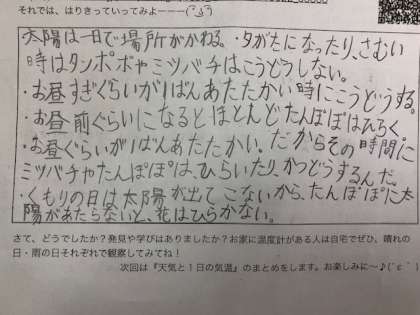 それでは、はりきっていってみよーーー(^ʖ^)
太陽は一日で場所がかわる。・夕がたになったり、さむい
時はタンポポやミツバチはこうどうしない。
・お昼すぎぐらいがいばんあたたかい時にこうどうする。
・お昼前ぐらいになるとほとんどたんぽぽはひらく
・お昼ぐらいがいばんあたたかい。だからその時間に
ミツバチやたんぽぽは、ひらいたり、かつどうするんだ。
・くもりの日は太陽が出てこないから、たんぽぽに太
陽があたらないと、花はひらかない。
さて、どうでしたか？発見や学びはありましたか？お家に温度計がある人は自宅でぜひ、晴れの
日・雨の日それぞれで観察してみてね！
次回は『天気と１日の気温』のまとめをします。お楽しみに〜♪(´ε｀ )